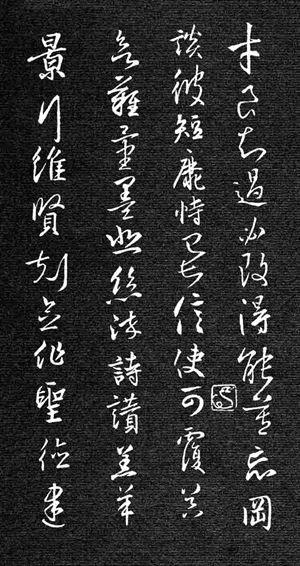 才良知過必改得能莫忘罔
談彼短靡恃己長信使可覆器
欲難量墨悲絲染詩讚羔羊
景行維賢剋念作聖德建